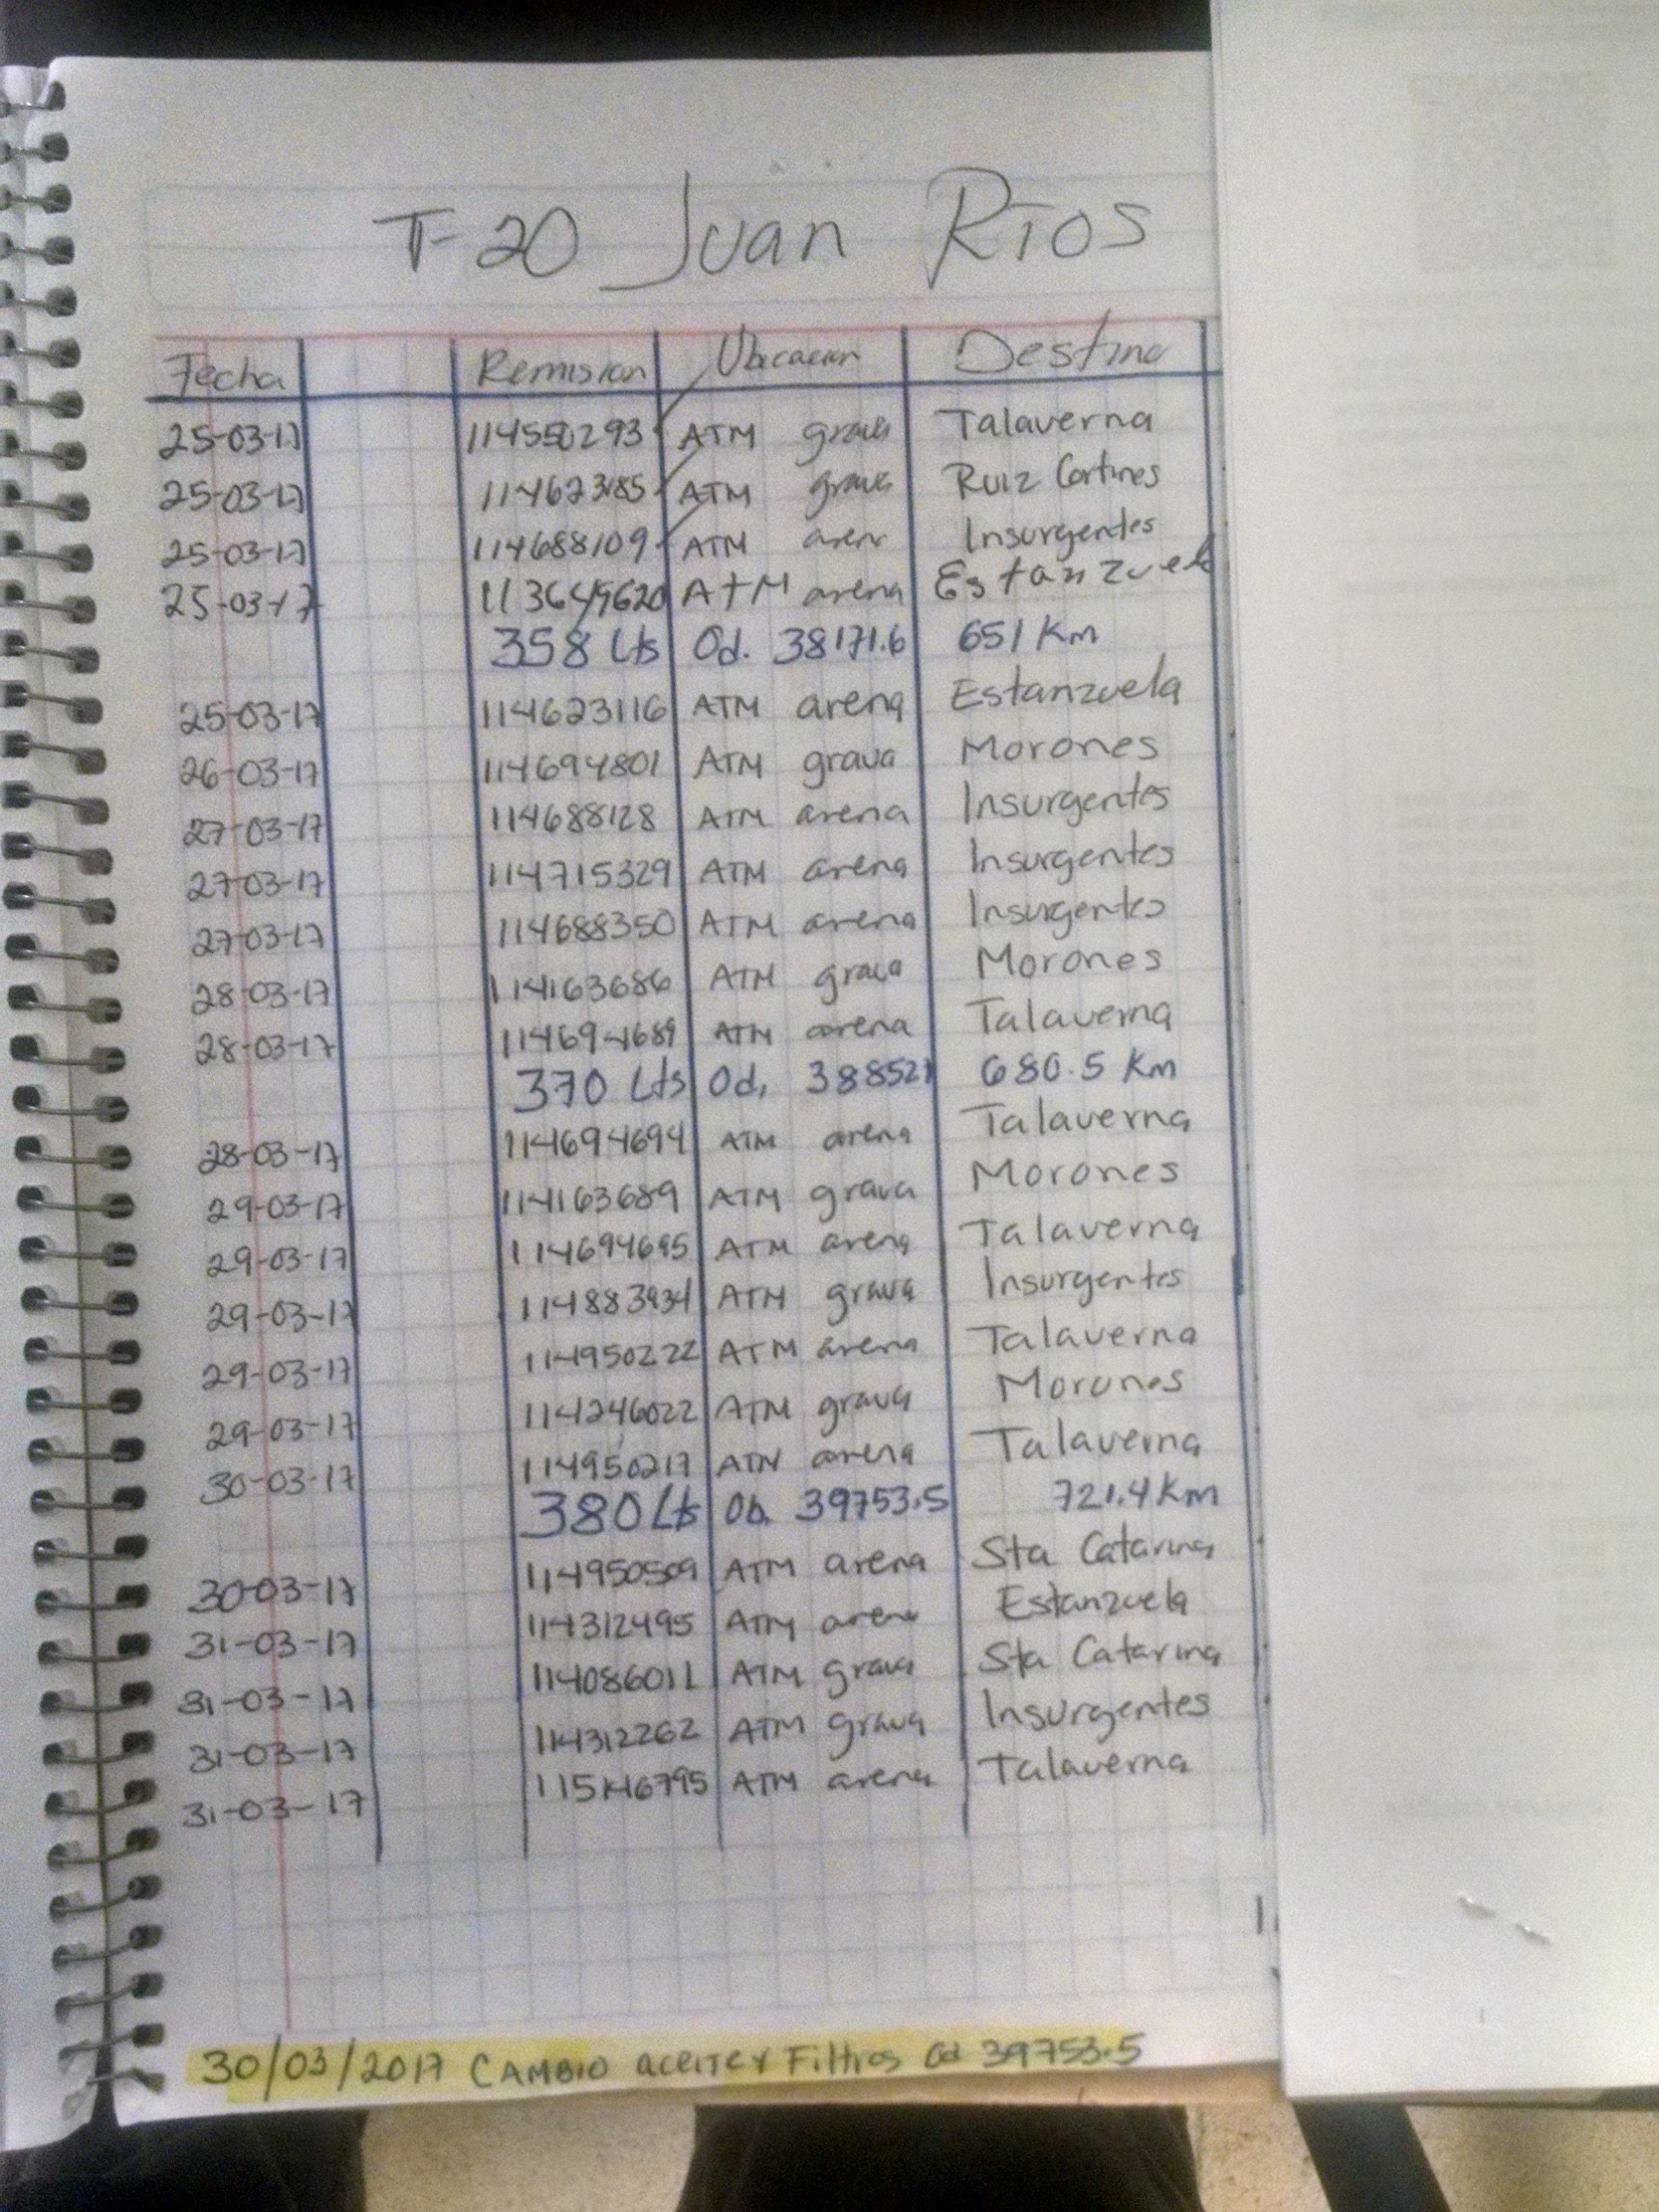 T-20 Juan Rios
Fecha Remision Ubicacion Destino
25-03-17 114550293 ATM grava Talaverna
25-03-17 114623185 ATM grava Ruiz Cortines
25-03-17 114688109 ATM arena Insurgentes
25-03-17 ATM arena Estanzuela
358 Lts Od. 38171.6 651 Km
25-03-17 114623116 ATM arena Estanzuela
26-03-17 114694801 ATM grava Morones
27-03-17 114688128 ATM arena Insurgentes
27-03-17 114715329 ATM arena Insurgentes
27-03-17 114688350 ATM arena Insurgentes
28-03-17 114163686 ATM grava Morones
28-03-17 114694689 ATM arena Talaverna
370 Lts Od. 680.5 Km
28-03-17 114694694 ATM arena Talaverna
29-03-17 114163689 ATM grava Morones
29-03-17 114694695 ATM arena Talaverna
29-03-17 114883934 ATM grava Insurgentes
29-03-17 114950222 ATM arena Talaverna
29-03-17 114246022 ATM grava Morones
30-03-17 114950217 ATM arena Talaverna
380 Lts Od. 39753.5 721.4 Km
30-03-17 114950509 ATM arena Sta Catarina
31-03-17 114312495 ATM arena Estanzuela
31-03-17 114086011 ATM grava Sta Catarina
31-03-17 114312262 ATM grava Insurgentes
31-03-17 115146795 ATM arena Talaverna
30/03/2017 CAMBIO aceite y Filtros Od 39753.5